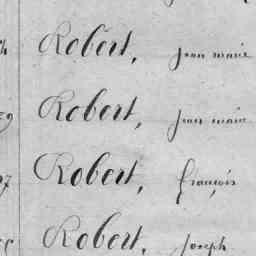 Robert, jean marie
Robert, jean marie
Robert, françois
Robert, Joseph